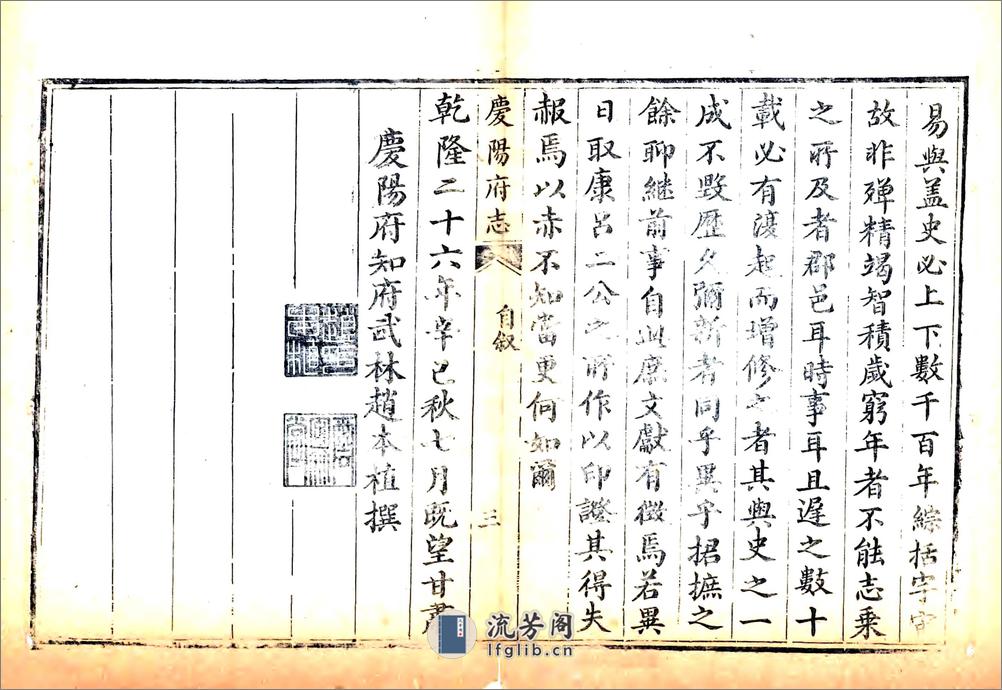 易與盖史必上下數千百年綜括宇宙
故非殫精竭智積歲窮年者不能志乗
之所及者郡邑耳時事耳且遲之數十
載必有濅起而增修之者其與史之一
成不毀歷久彌新者同乎異乎捃摭之
餘聊繼前事自此庶文獻有徵焉若異
日取康呂二公之所作以印證其得失
赧焉以赤不知當更何如爾
慶陽府志
自敘
三
乾隆二十六年辛巳秋七月既望甘肅
慶陽府知府武林趙本植撰
流芳阁
lfglib.cn